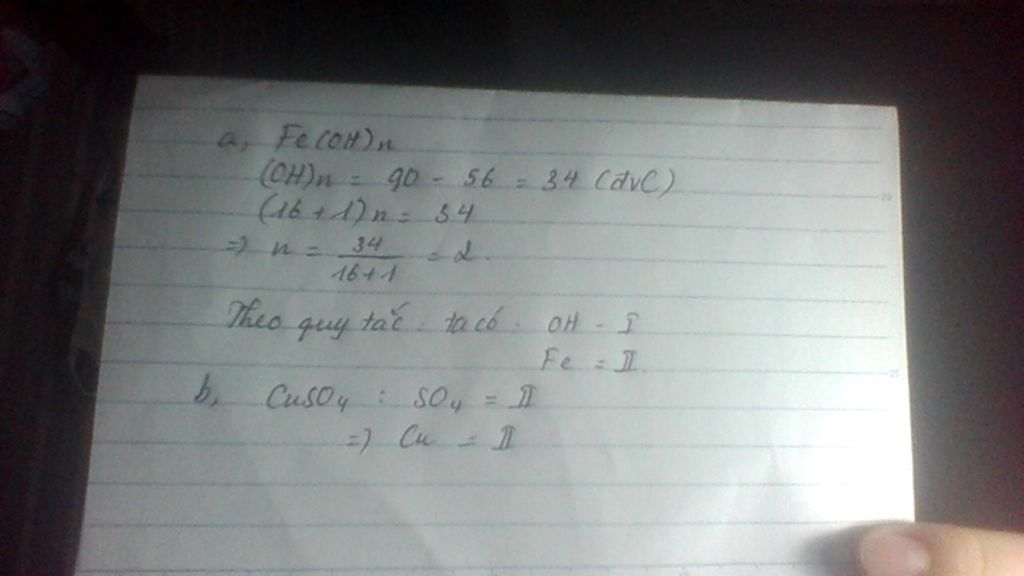 a, Fe(OH)n
(OH)n = 90 - 56 = 34 (đvC)
(16 + 1)n = 34
=> n = 34 / 16+1 = 2.
Theo quy tắc : ta có : OH - I
Fe = II.
b, CuSO4 : SO4 = II
=> Cu = II